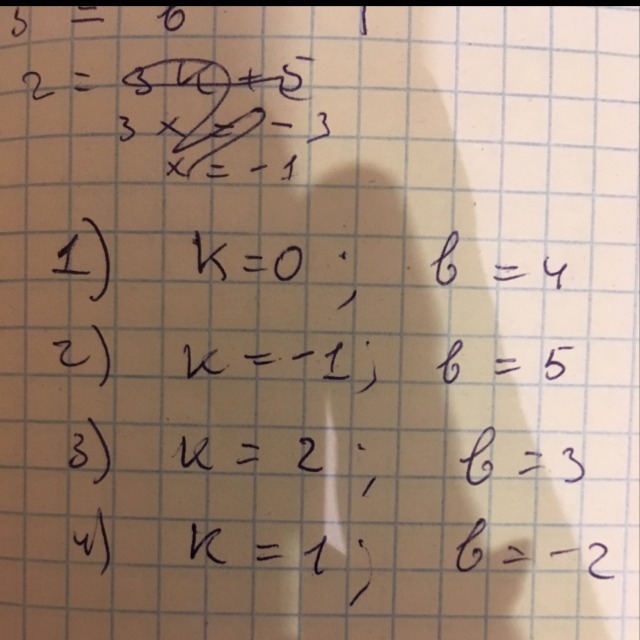 2 = 3k + 5
3x = -3
x = -1
1) k = 0; b = 4
2) k = -1; b = 5
3) k = 2; b = 3
4) k = 1; b = -2